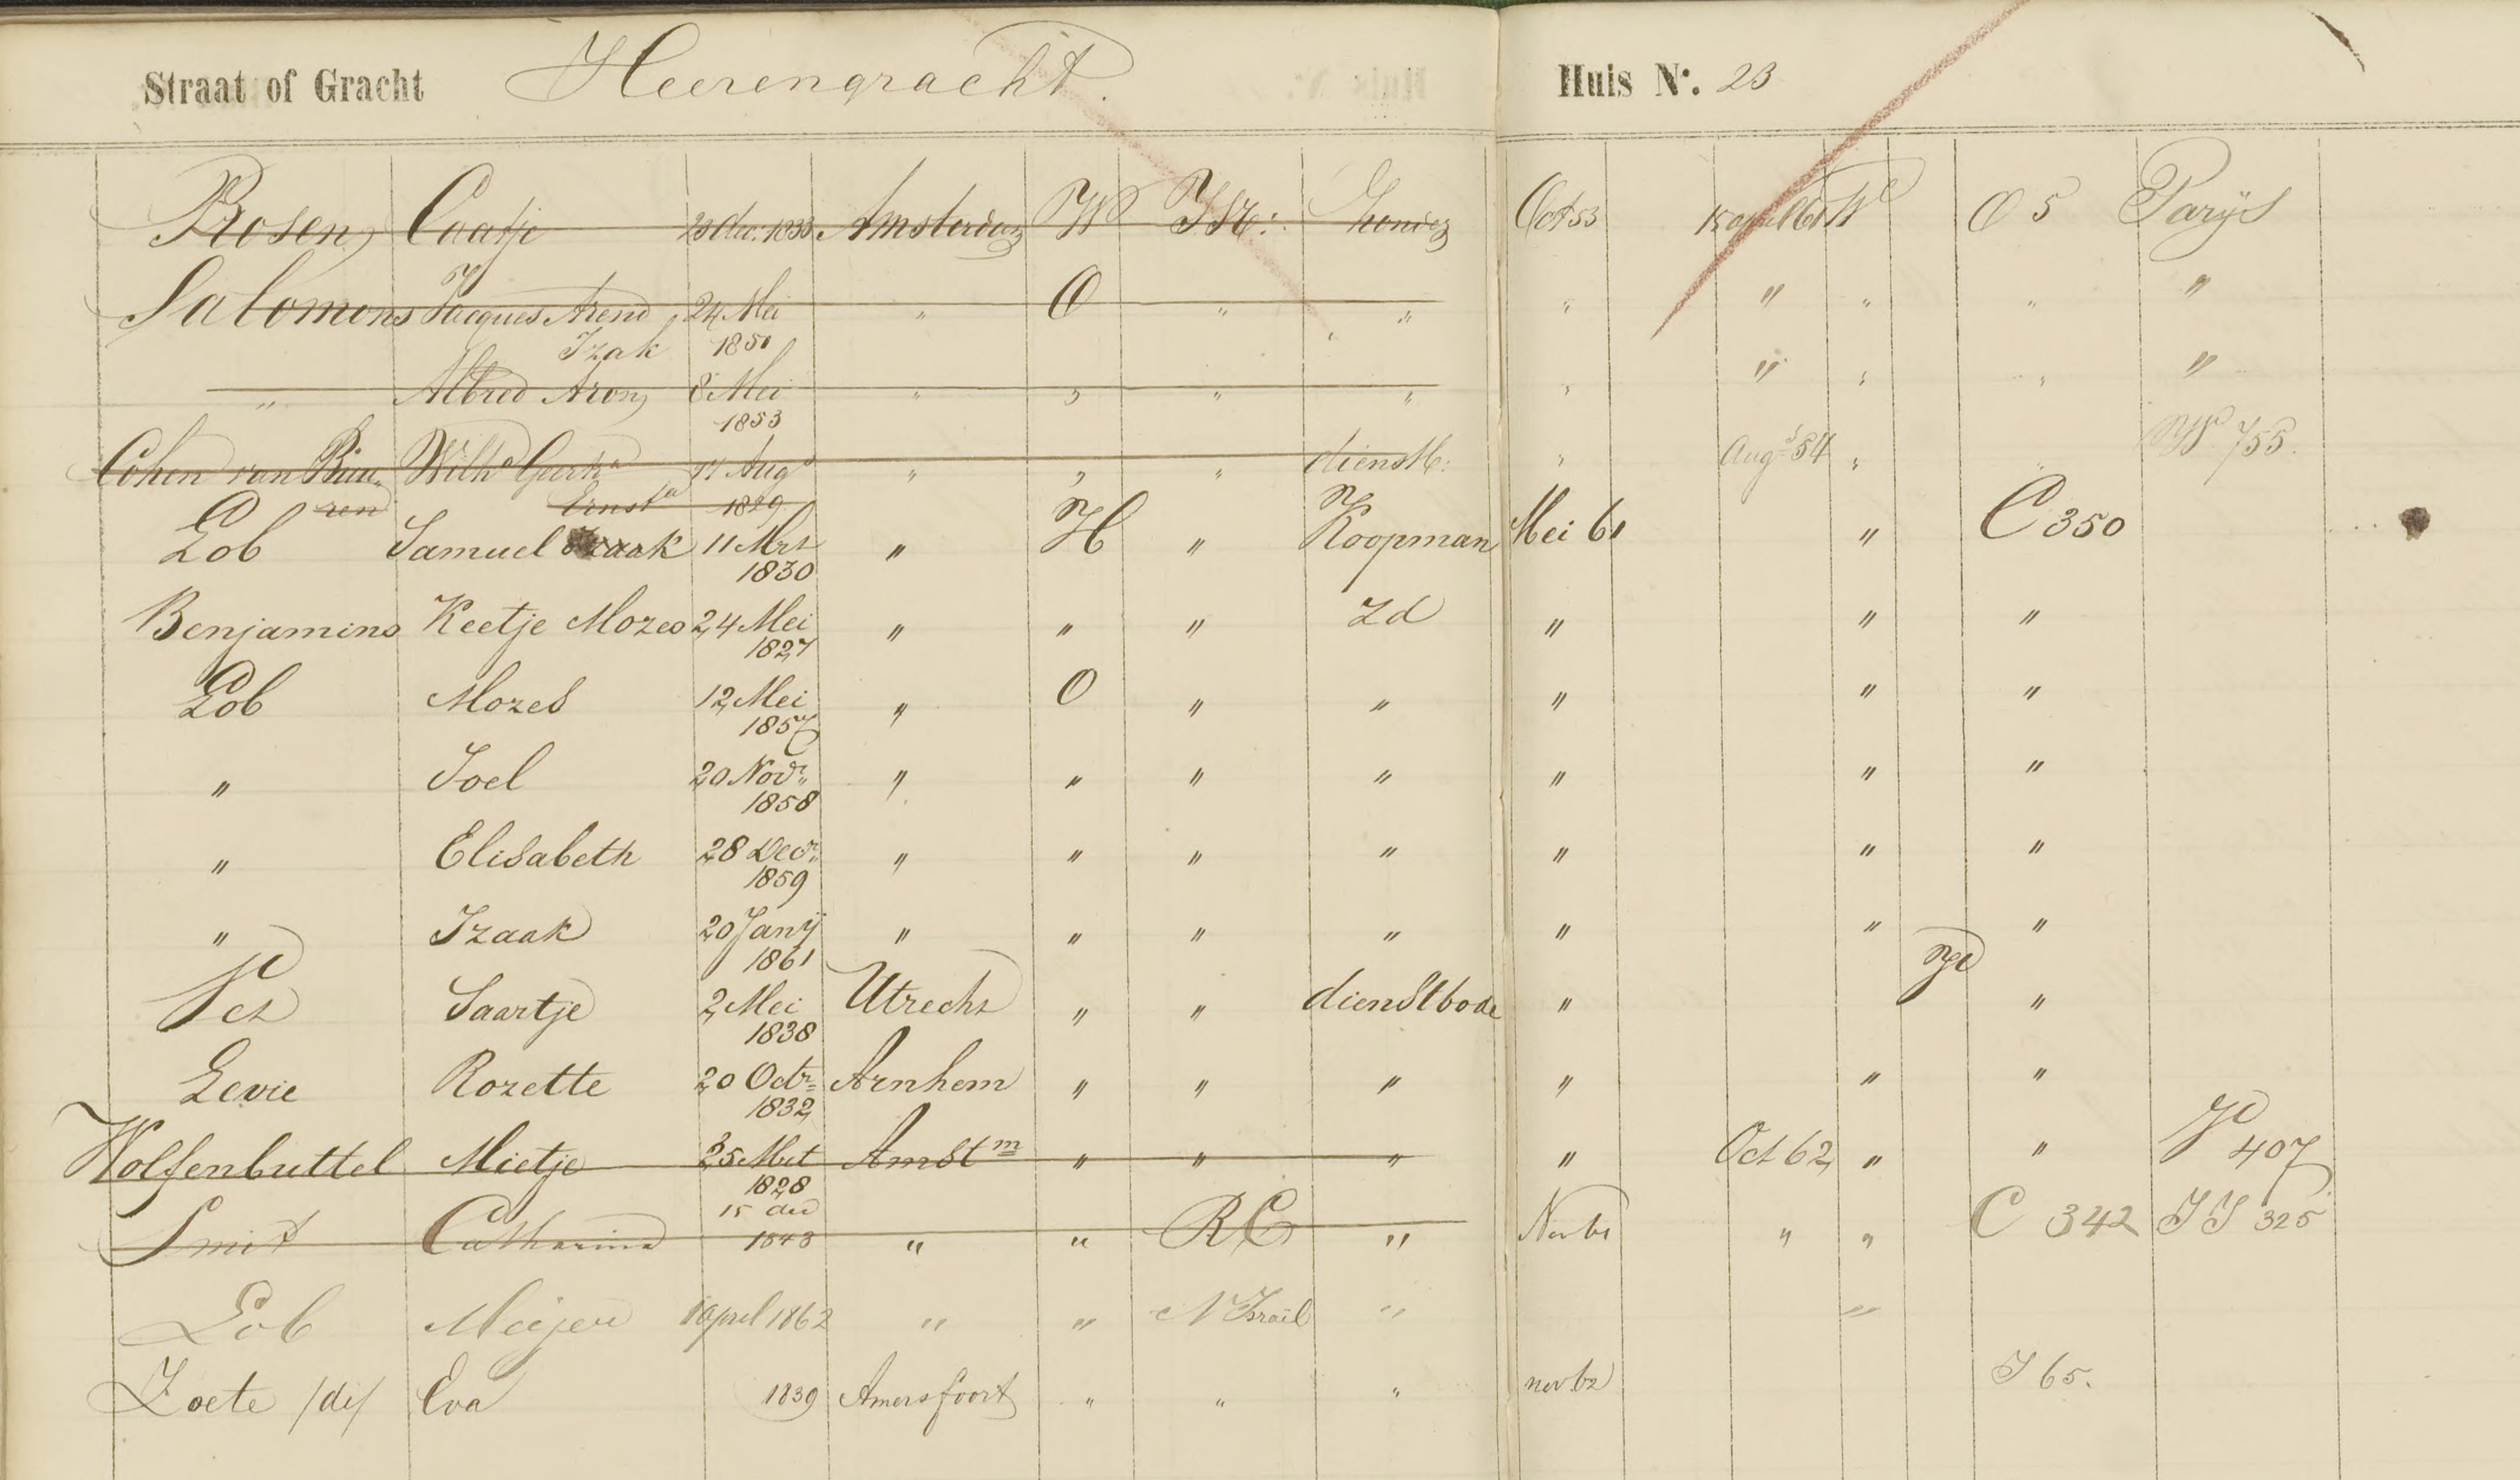 Straat of Gracht Heerengracht. Huis Nº. 23
Rosen Caatje 23 dec: 1833 Amsterdam W Isr: Zonder Oct 53 O 5 Parijs
Salomons Jacques Arend 24 Mei " O " " " " " " "
Izak 1851
" Alfred Aron 8 Mei " " " " " " " " "
1853
Cohen van Buu- Wilha Geert 17 Augs " " " dienstb: " Augs 54 " " W 755.
ren Ernsta 1829
Lob Samuel Izaak 11 Mrt " H " Koopman Mei 61 " C 350
1830
Benjamins Keetje Mozes 24 Mei " " " Zd " " "
1827
Lob Mozes 12 Mei " O " " " " "
1857
" Joel 20 Novr " " " " " " "
1858
" Elisabeth 28 Decr " " " " " " "
1859
" Izaak 20 Janij " " " " " " "
1861
Pct Saartje 2 Mei Utrecht " " dienstbode " "
1838
Levie Rozette 20 Octr Arnhem " " " " " "
1832
Wolfenbuttel Mietje 25 Mrt Amstm " " " " Oct 62 " " P 407
1828
Smit Catharina 15 dec " " RC " Nov 61 " " C 342 JJ 325
1843
Lob Meijer 1 April 1862 " " N Israel " "
Zoete /de/ Eva 1839 Amersfoort " " " nov 62 J 65.